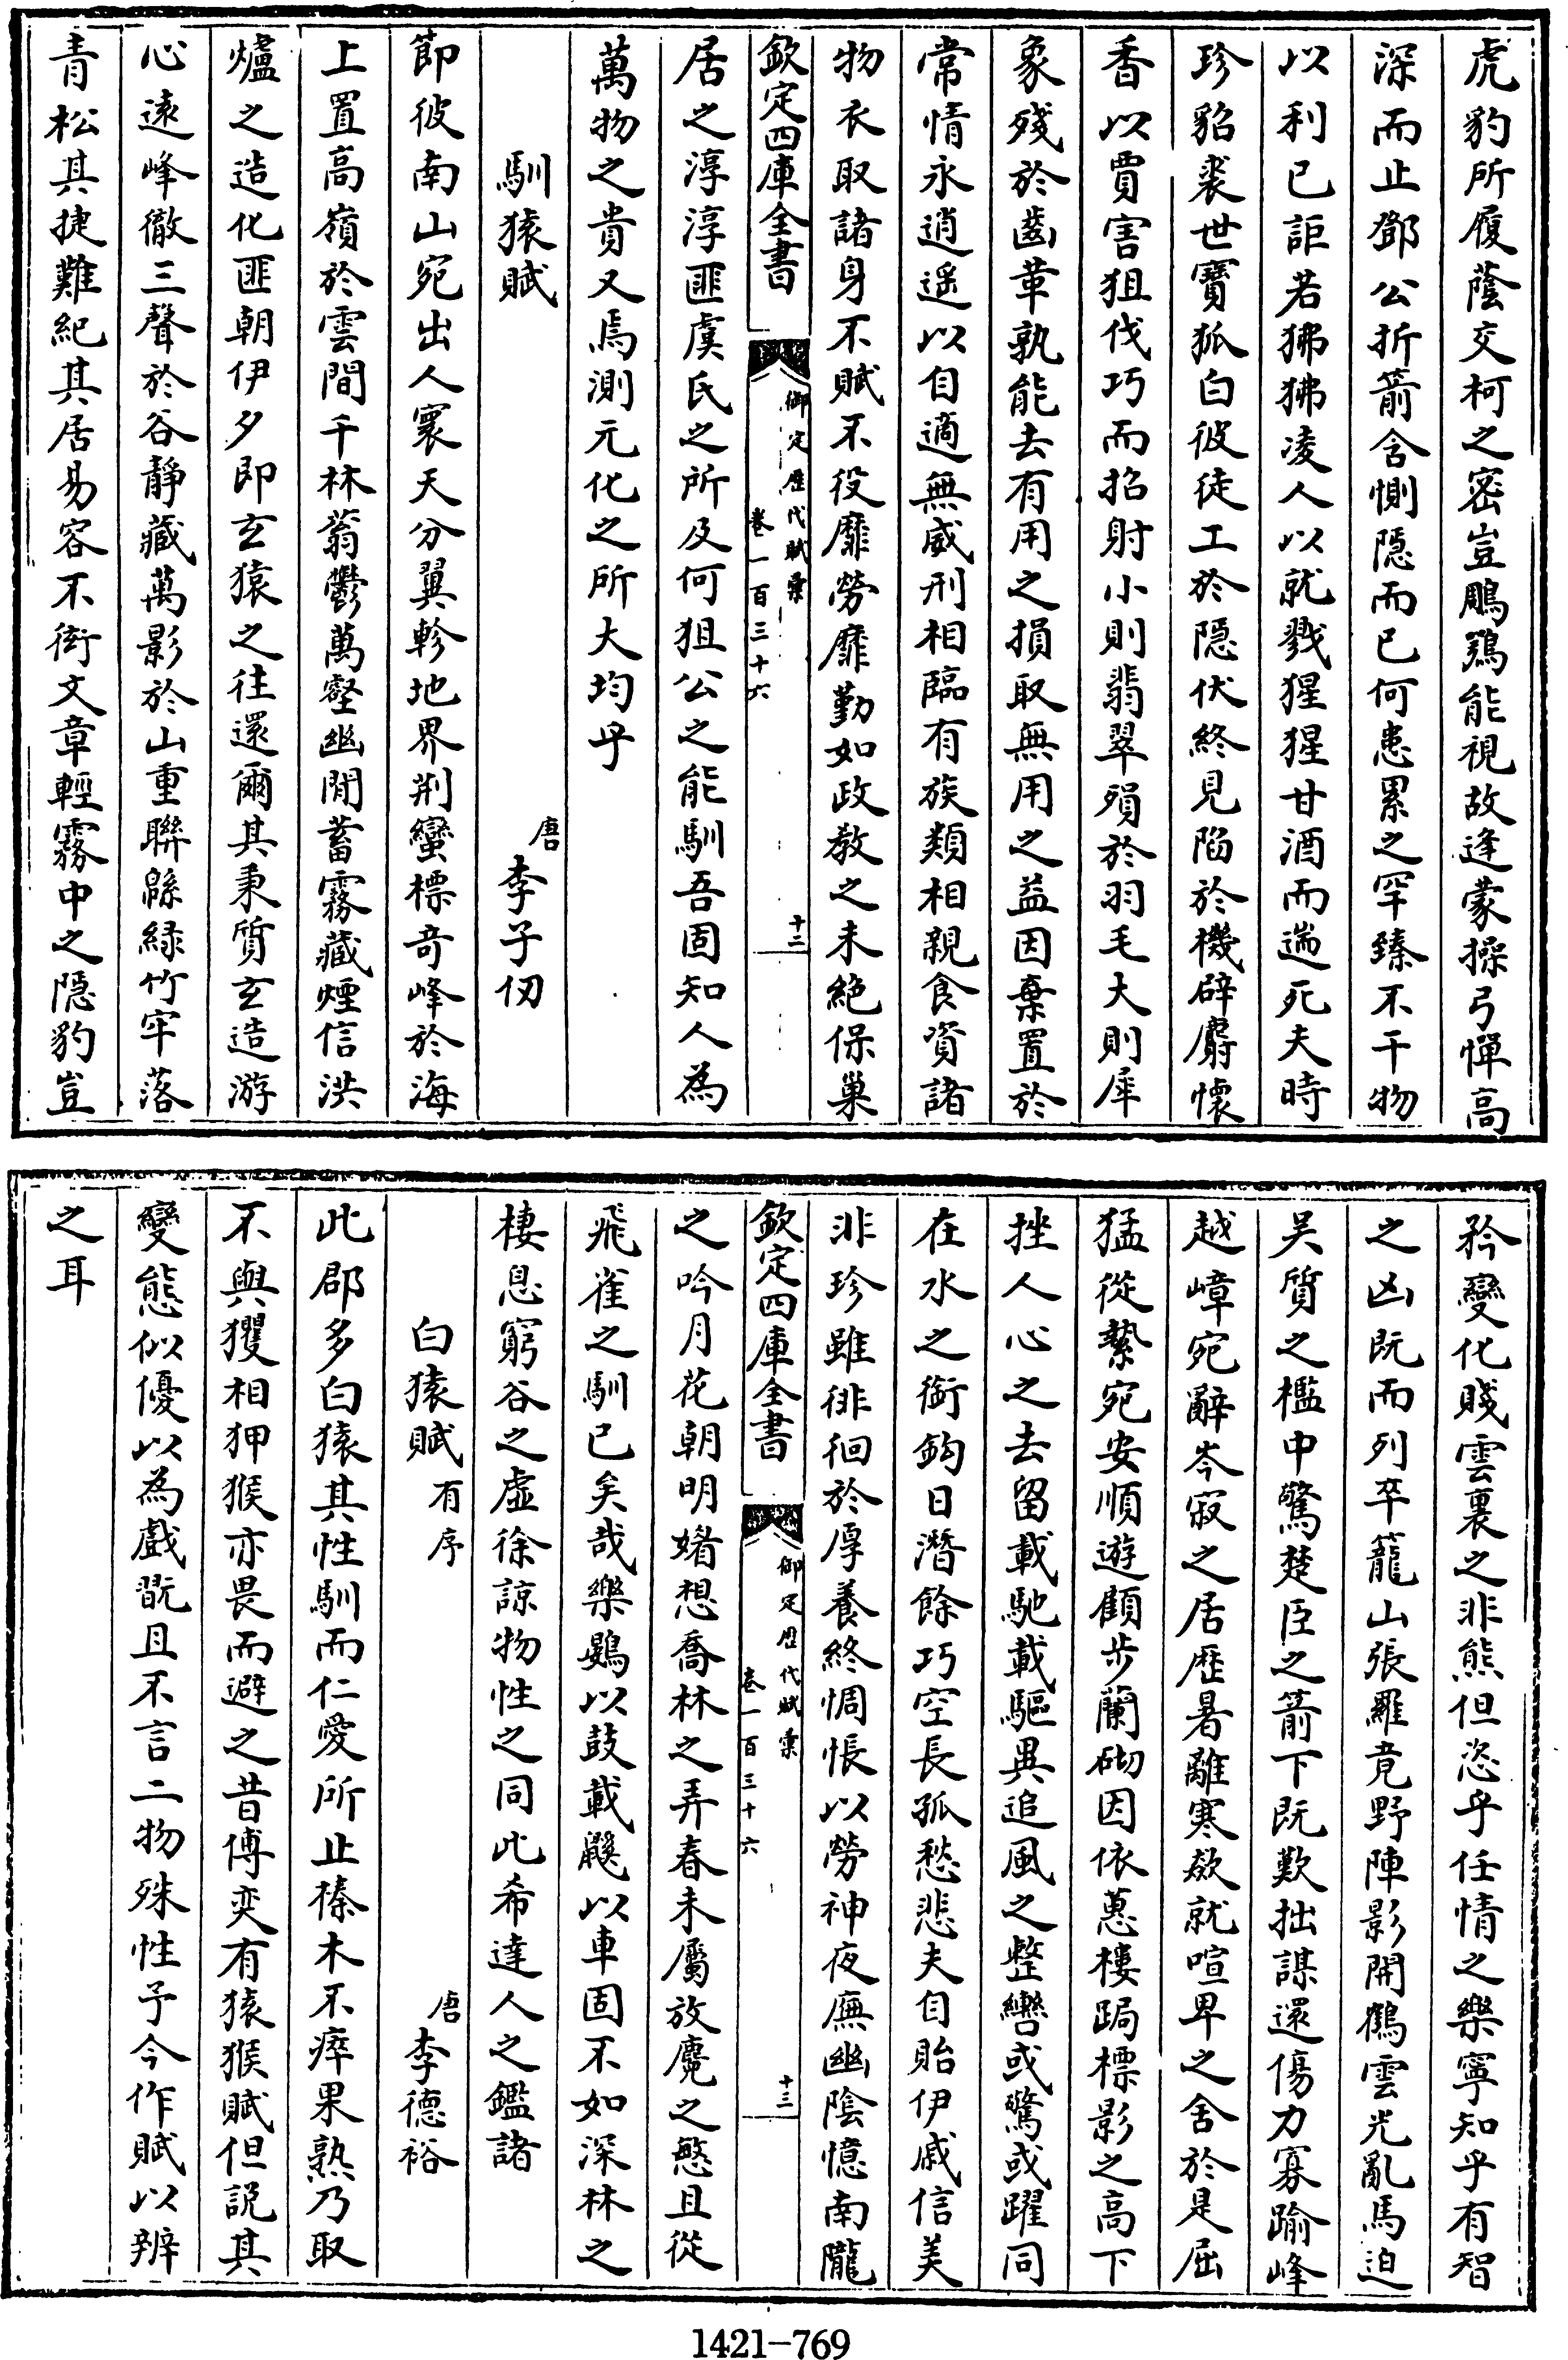 虎豹所履蔭交柯之密豈鵰鶚能視故逢蒙操弓憚高
深而止鄧公折箭含惻隠而已何患累之罕臻不干物
以利已詎若狒狒凌人以就戮猩猩甘酒而耑死夫時
珍貂裘世寶狐白彼徒工於隠伏終見陷於機辟麝懐
香以賈害狙伐巧而招射小則翡翠殞於羽毛大則犀
象殘於齒革孰能去有用之損取無用之益因棄置於
常情永逍遥以自適無威刑相臨有族類相親食資諸
物衣取諸身不賦不役靡勞靡勤如政教之未絶保巢
欽定四庫全書
御定歴代賦彚
卷一百三十六
十二
居之淳淳匪虞氏之所及何狙公之能馴吾固知人為
萬物之貴又焉測元化之所大均乎
馴猿賦
唐李子仞
節彼南山宛出人寰天分翼軫地界荆蠻標竒峰於海
上置高嶺於雲間千林蓊鬱萬壑幽閒蓄霧藏煙信洪
爐之造化匪朝伊夕即玄猿之往還爾其秉質玄造游
心遠峰徹三聲於谷靜藏萬影於山重聨緜緑竹牢落
青松其捷難紀其居易容不衒文章輕霧中之隠豹豈
矜變化賤雲裏之非熊但恣乎任情之樂寧知乎有智
之凶既而列卒籠山張羅竟野陣影開鶴雲光亂馬迫
吴質之檻中驚楚臣之箭下既歎拙謀還傷力寡踰峰
越嶂宛辭岑寂之居歴暑離寒欻就喧卑之舍於是屈
猛從縶宛安順遊顧步蘭砌因依蕙樓跼標影之高下
挫人心之去留載馳載驅異追風之整轡或驚或躍同
在水之銜鈎日潛餘巧空長孤愁悲夫自貽伊戚信美
非珍雖徘徊於厚養終惆悵以勞神夜廡幽陰憶南隴
欽定四庫全書
御定歴代賦彚
卷一百三十六
十三
之吟月花朝明媎想喬林之弄春未屬放麑之慜且從
飛雀之馴已矣哉樂鷃以鼓載鼷以車固不如深林之
棲息窮谷之虚徐諒物性之同此希達人之鑑諸
白猿賦有序
唐李德裕
此郡多白猿其性馴而仁愛所止榛木不瘁果熟乃取
不與玃相狎猴亦畏而避之昔傅奕有猿猴賦但説其
變態似優以為戲翫且不言二物殊性予今作賦以辨
之耳
1421-769